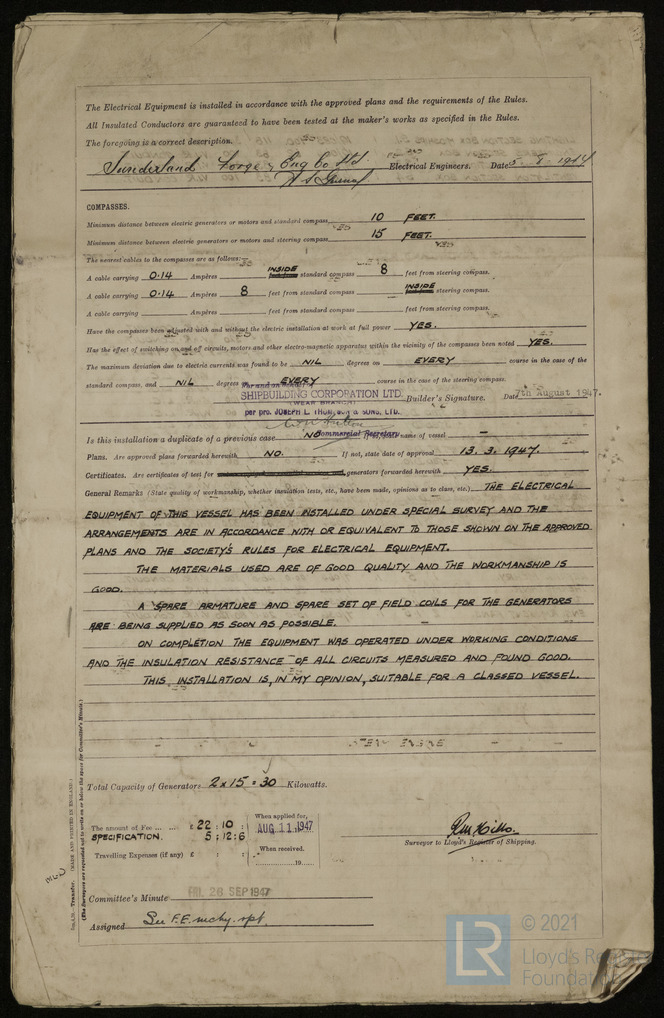 The Electrical Equipment is installed in accordance with the approved plans and the requirements of the Rules.
All Insulated Conductors are guaranteed to have been tested at the maker's works as specified in the Rules.
The foregoing is a correct description.
Sunderland Forge & Eng Co Ltd Electrical Engineers. Date 5. 8. 1947
COMPASSES.
Minimum distance between electric generators or motors and standard compass 10 FEET.
Minimum distance between electric generators or motors and steering compass 15 FEET.
The nearest cables to the compasses are as follows:—
A cable carrying 0.14 Ampères INSIDE standard compass 8 feet from steering compass.
A cable carrying 0.14 Ampères 8 feet from standard compass INSIDE steering compass.
A cable carrying Ampères feet from standard compass feet from steering compass.
Have the compasses been adjusted with and without the electric installation at work at full power YES.
Has the effect of switching on and off circuits, motors and other electro-magnetic apparatus within the vicinity of the compasses been noted YES.
The maximum deviation due to electric currents was found to be NIL degrees on EVERY course in the case of the
standard compass, and NIL degrees on EVERY course in the case of the steering compass.
SHIPBUILDING CORPORATION LTD. Builder's Signature. Date 7th August 1947.
(WEAR BRANCH)
per pro. JOSEPH L. THOMPSON & SONS, LTD.
Commercial Secretary
Is this installation a duplicate of a previous case NO If so, state name of vessel —
Plans. Are approved plans forwarded herewith NO. If not, state date of approval 13. 3. 1947.
Certificates. Are certificates of test for generators forwarded herewith YES.
General Remarks (State quality of workmanship, whether insulation tests, etc., have been made, opinions as to class, etc.) THE ELECTRICAL
EQUIPMENT OF THIS VESSEL HAS BEEN INSTALLED UNDER SPECIAL SURVEY AND THE
ARRANGEMENTS ARE IN ACCORDANCE WITH OR EQUIVALENT TO THOSE SHOWN ON THE APPROVED
PLANS AND THE SOCIETY'S RULES FOR ELECTRICAL EQUIPMENT.
THE MATERIALS USED ARE OF GOOD QUALITY AND THE WORKMANSHIP IS
GOOD.
A SPARE ARMATURE AND SPARE SET OF FIELD COILS FOR THE GENERATORS
ARE BEING SUPPLIED AS SOON AS POSSIBLE.
ON COMPLETION THE EQUIPMENT WAS OPERATED UNDER WORKING CONDITIONS
AND THE INSULATION RESISTANCE OF ALL CIRCUITS MEASURED AND FOUND GOOD.
THIS INSTALLATION IS, IN MY OPINION, SUITABLE FOR A CLASSED VESSEL.
Total Capacity of Generators 2 x 15 = 30 Kilowatts.
The amount of Fee ... ... £ 22 : 10 : When applied for,
SPECIFICATION. 5 : 12 : 6 AUG 11 1947
Travelling Expenses (if any) £ : : When received,
19
Surveyor to Lloyd's Register of Shipping.
Committee's Minute FRI. 26 SEP 1947
Assigned See F.E. mchy. rpt.
Transfer. (MADE AND PRINTED IN ENGLAND.)
(The Surveyors are requested not to write on or below the space for Committee's Minute.)
© 2021
LR
Lloyd's Register
Foundation